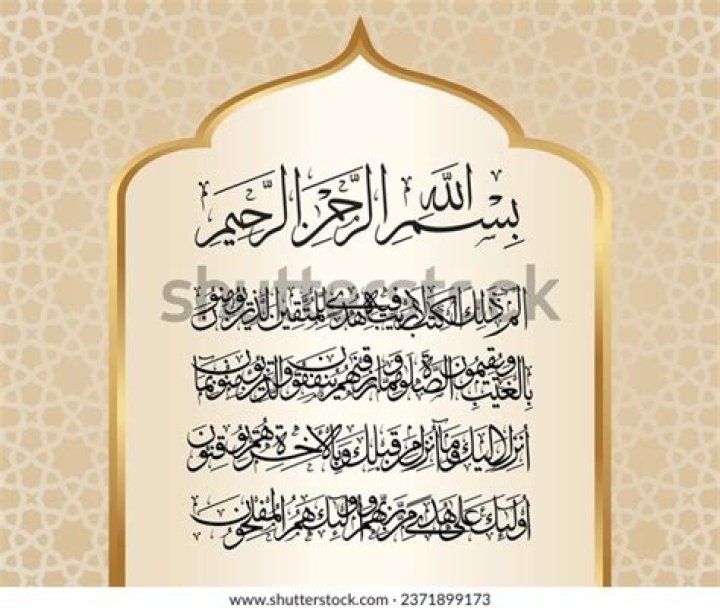 بسم الله الرحمن الرحيم
الم ذلك الكتب لا ريب فيه هدى للمتقين الذين يؤمنون
بالغيب ويقيمون الصلوة ومما رزقنهم ينفقون والذين يؤمنون بما
أنزل إليك وما أنزل من قبلك وبالآخرة هم يوقنون
أولئك على هدى من ربهم وأولئك هم المفلحون
shutterstock
www.shutterstock.com · 2371899173